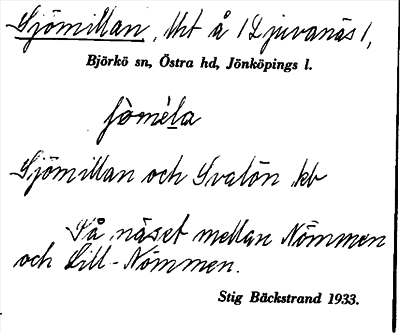 Sjömillan, Uht å 1 Ljuvanäs 1,
Björkö sn, Östra hd, Jönköpings l.
Sjömillan och Svalön kb
På näset mellan Nömmen
och Lill-Nömmen.
Stig Bäckstrand 1933.